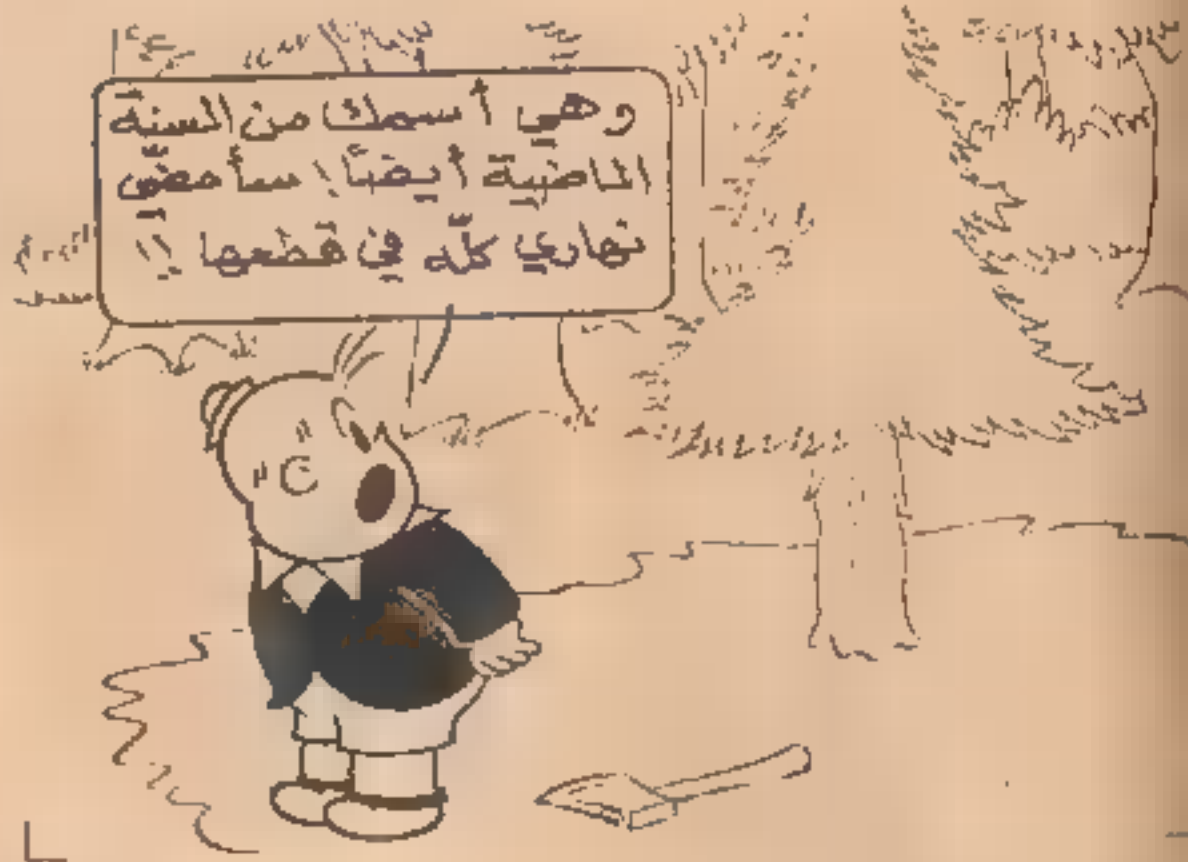 وهي أسمك من السنة
الماضية أيضًا! سأمضّي
نهاري كلّه في قطعها!!